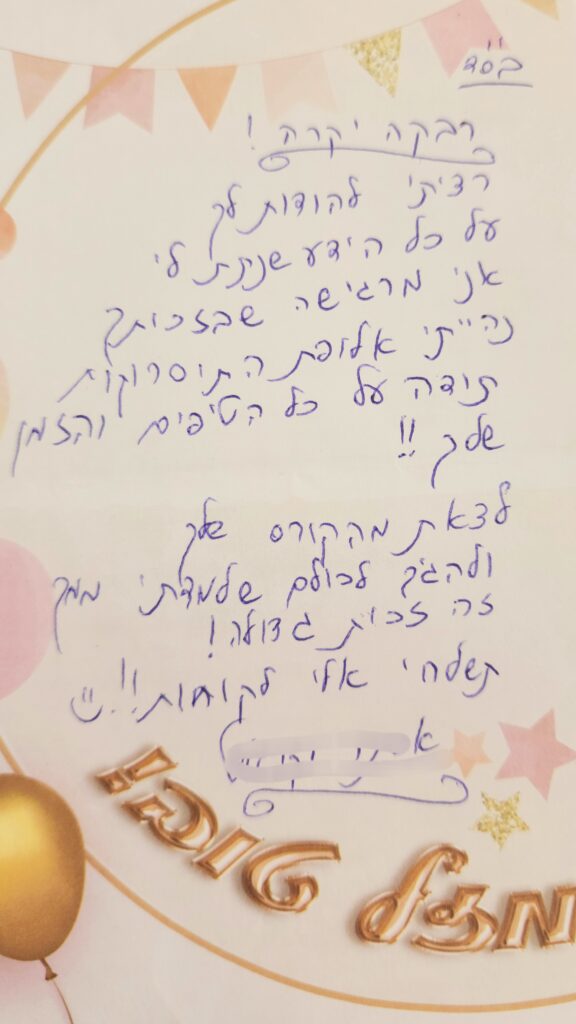 בס"ד
רבקה יקרה!
רציתי להודות לך
על כל הידע שנתת לי
אני מרגישה שבזכותך
נהייתי אלופת התיסרוקות
תודה על כל הטיפים והזמן
שלך!!
לצאת מהקורס שלך
ולהגיד לכולם שלמדתי ממך
זה זכות גדולה!
תשלחי אלי לקוחות!!
מזל טוב!